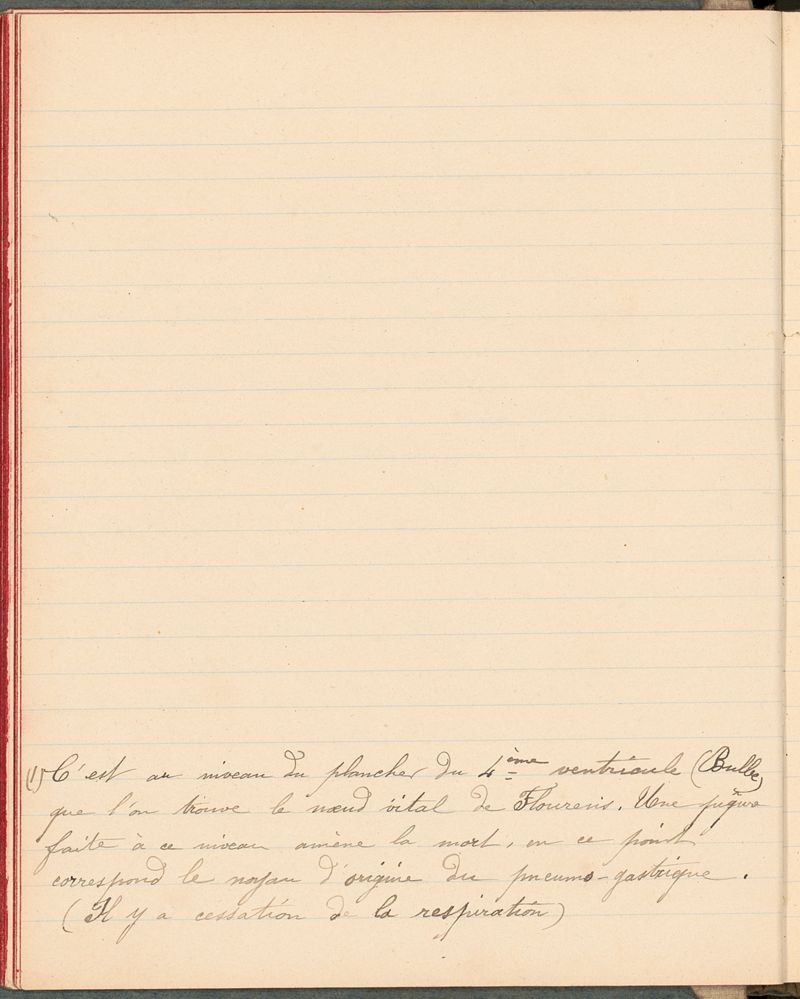 (1) C'est au niveau du plancher du 4ème ventricule (Bulbe)
que l'on trouve le nœud vital de Flourens. Une piqûre
faite à ce niveau amène la mort, en ce point
correspond le noyau d'origine du pneumo-gastrique.
(Il y a cessation de la respiration)